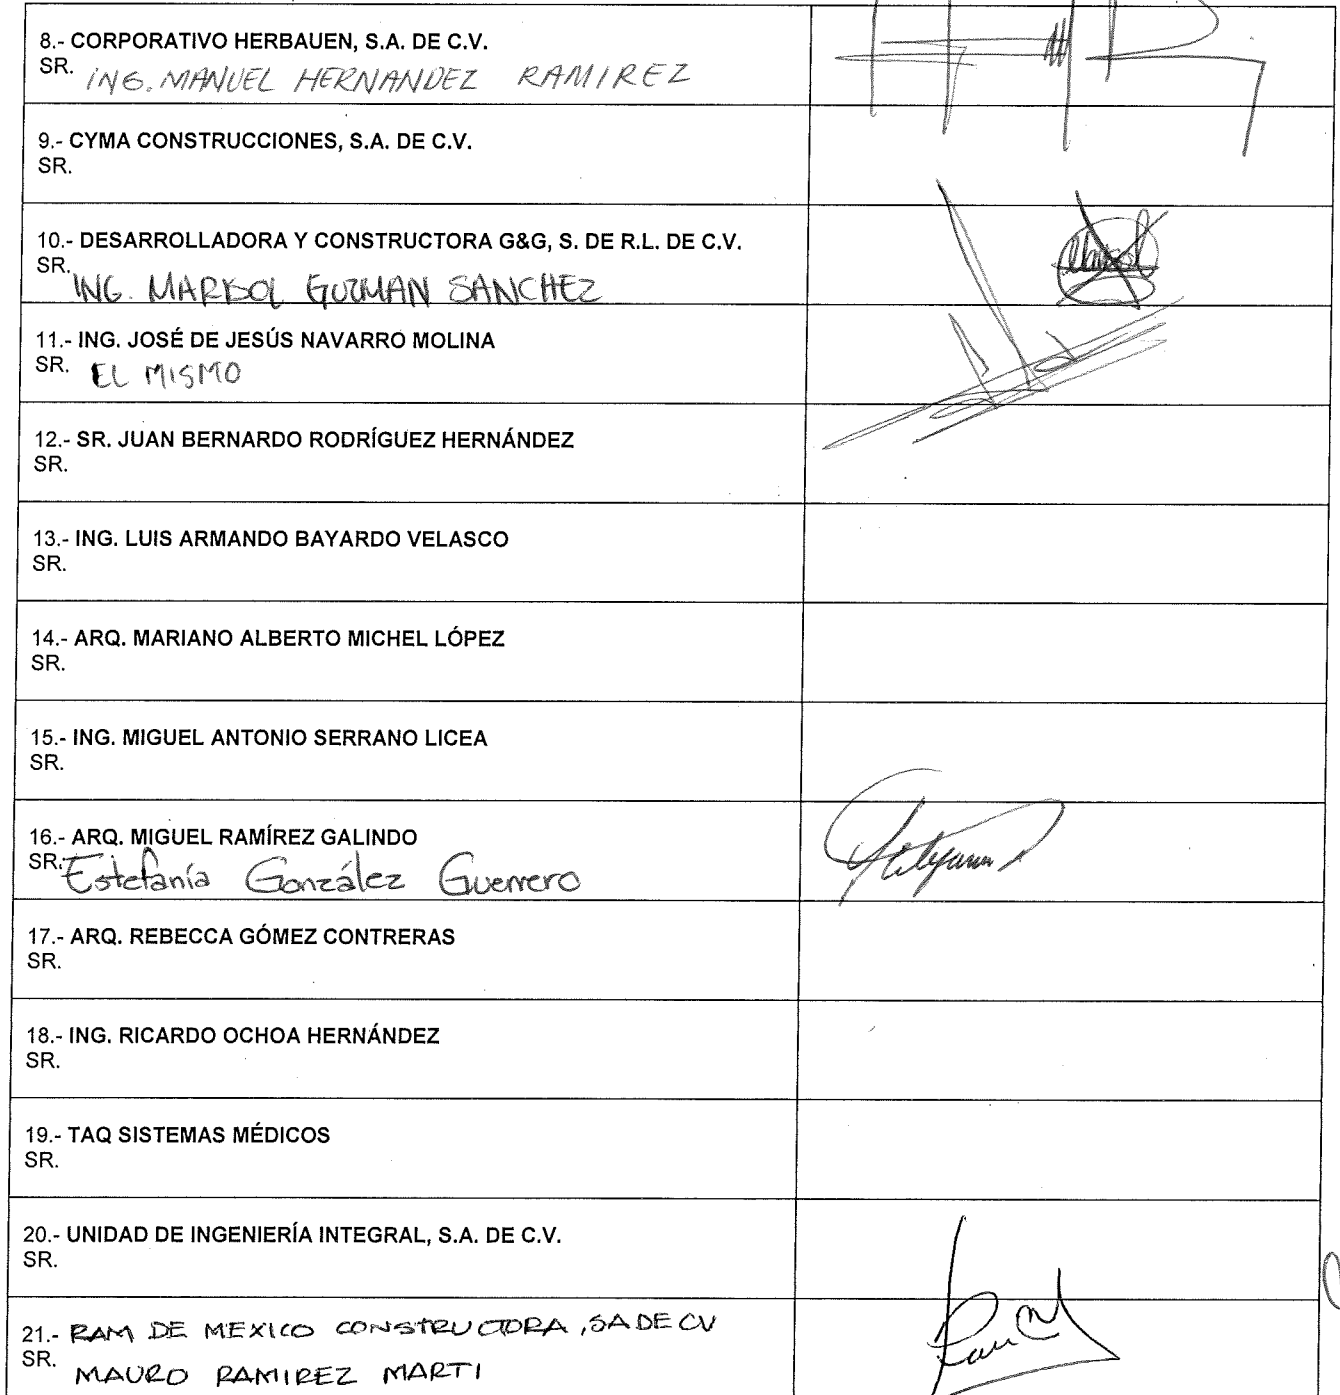 8.- CORPORATIVO HERBAUEN, S.A. DE C.V.
SR. ING. MANUEL HERNANDEZ RAMIREZ
9.- CYMA CONSTRUCCIONES, S.A. DE C.V.
SR.
10.- DESARROLLADORA Y CONSTRUCTORA G&G, S. DE R.L. DE C.V.
SR. ING. MARISOL GUZMAN SANCHEZ
11.- ING. JOSÉ DE JESÚS NAVARRO MOLINA
SR. EL MISMO
12.- SR. JUAN BERNARDO RODRÍGUEZ HERNÁNDEZ
SR.
13.- ING. LUIS ARMANDO BAYARDO VELASCO
SR.
14.- ARQ. MARIANO ALBERTO MICHEL LÓPEZ
SR.
15.- ING. MIGUEL ANTONIO SERRANO LICEA
SR.
16.- ARQ. MIGUEL RAMÍREZ GALINDO
SR. Estefanía González Guerrero
17.- ARQ. REBECCA GÓMEZ CONTRERAS
SR.
18.- ING. RICARDO OCHOA HERNÁNDEZ
SR.
19.- TAQ SISTEMAS MÉDICOS
SR.
20.- UNIDAD DE INGENIERÍA INTEGRAL, S.A. DE C.V.
SR.
21.- RAM DE MEXICO CONSTRUCTORA, SA DE CV
SR. MAURO RAMIREZ MARTI